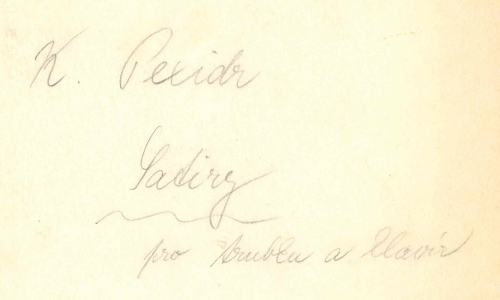 K. Pexidr
Satiry
pro trubku a klavír